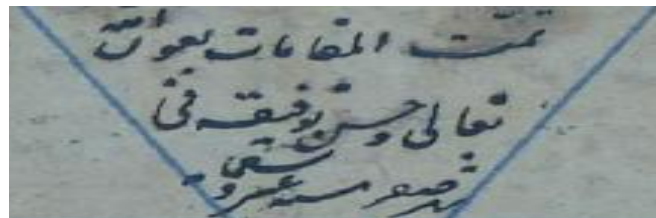 تمت المقامات بعون الله
تعالى وحسن توفيقه في
شهر صفر سنة